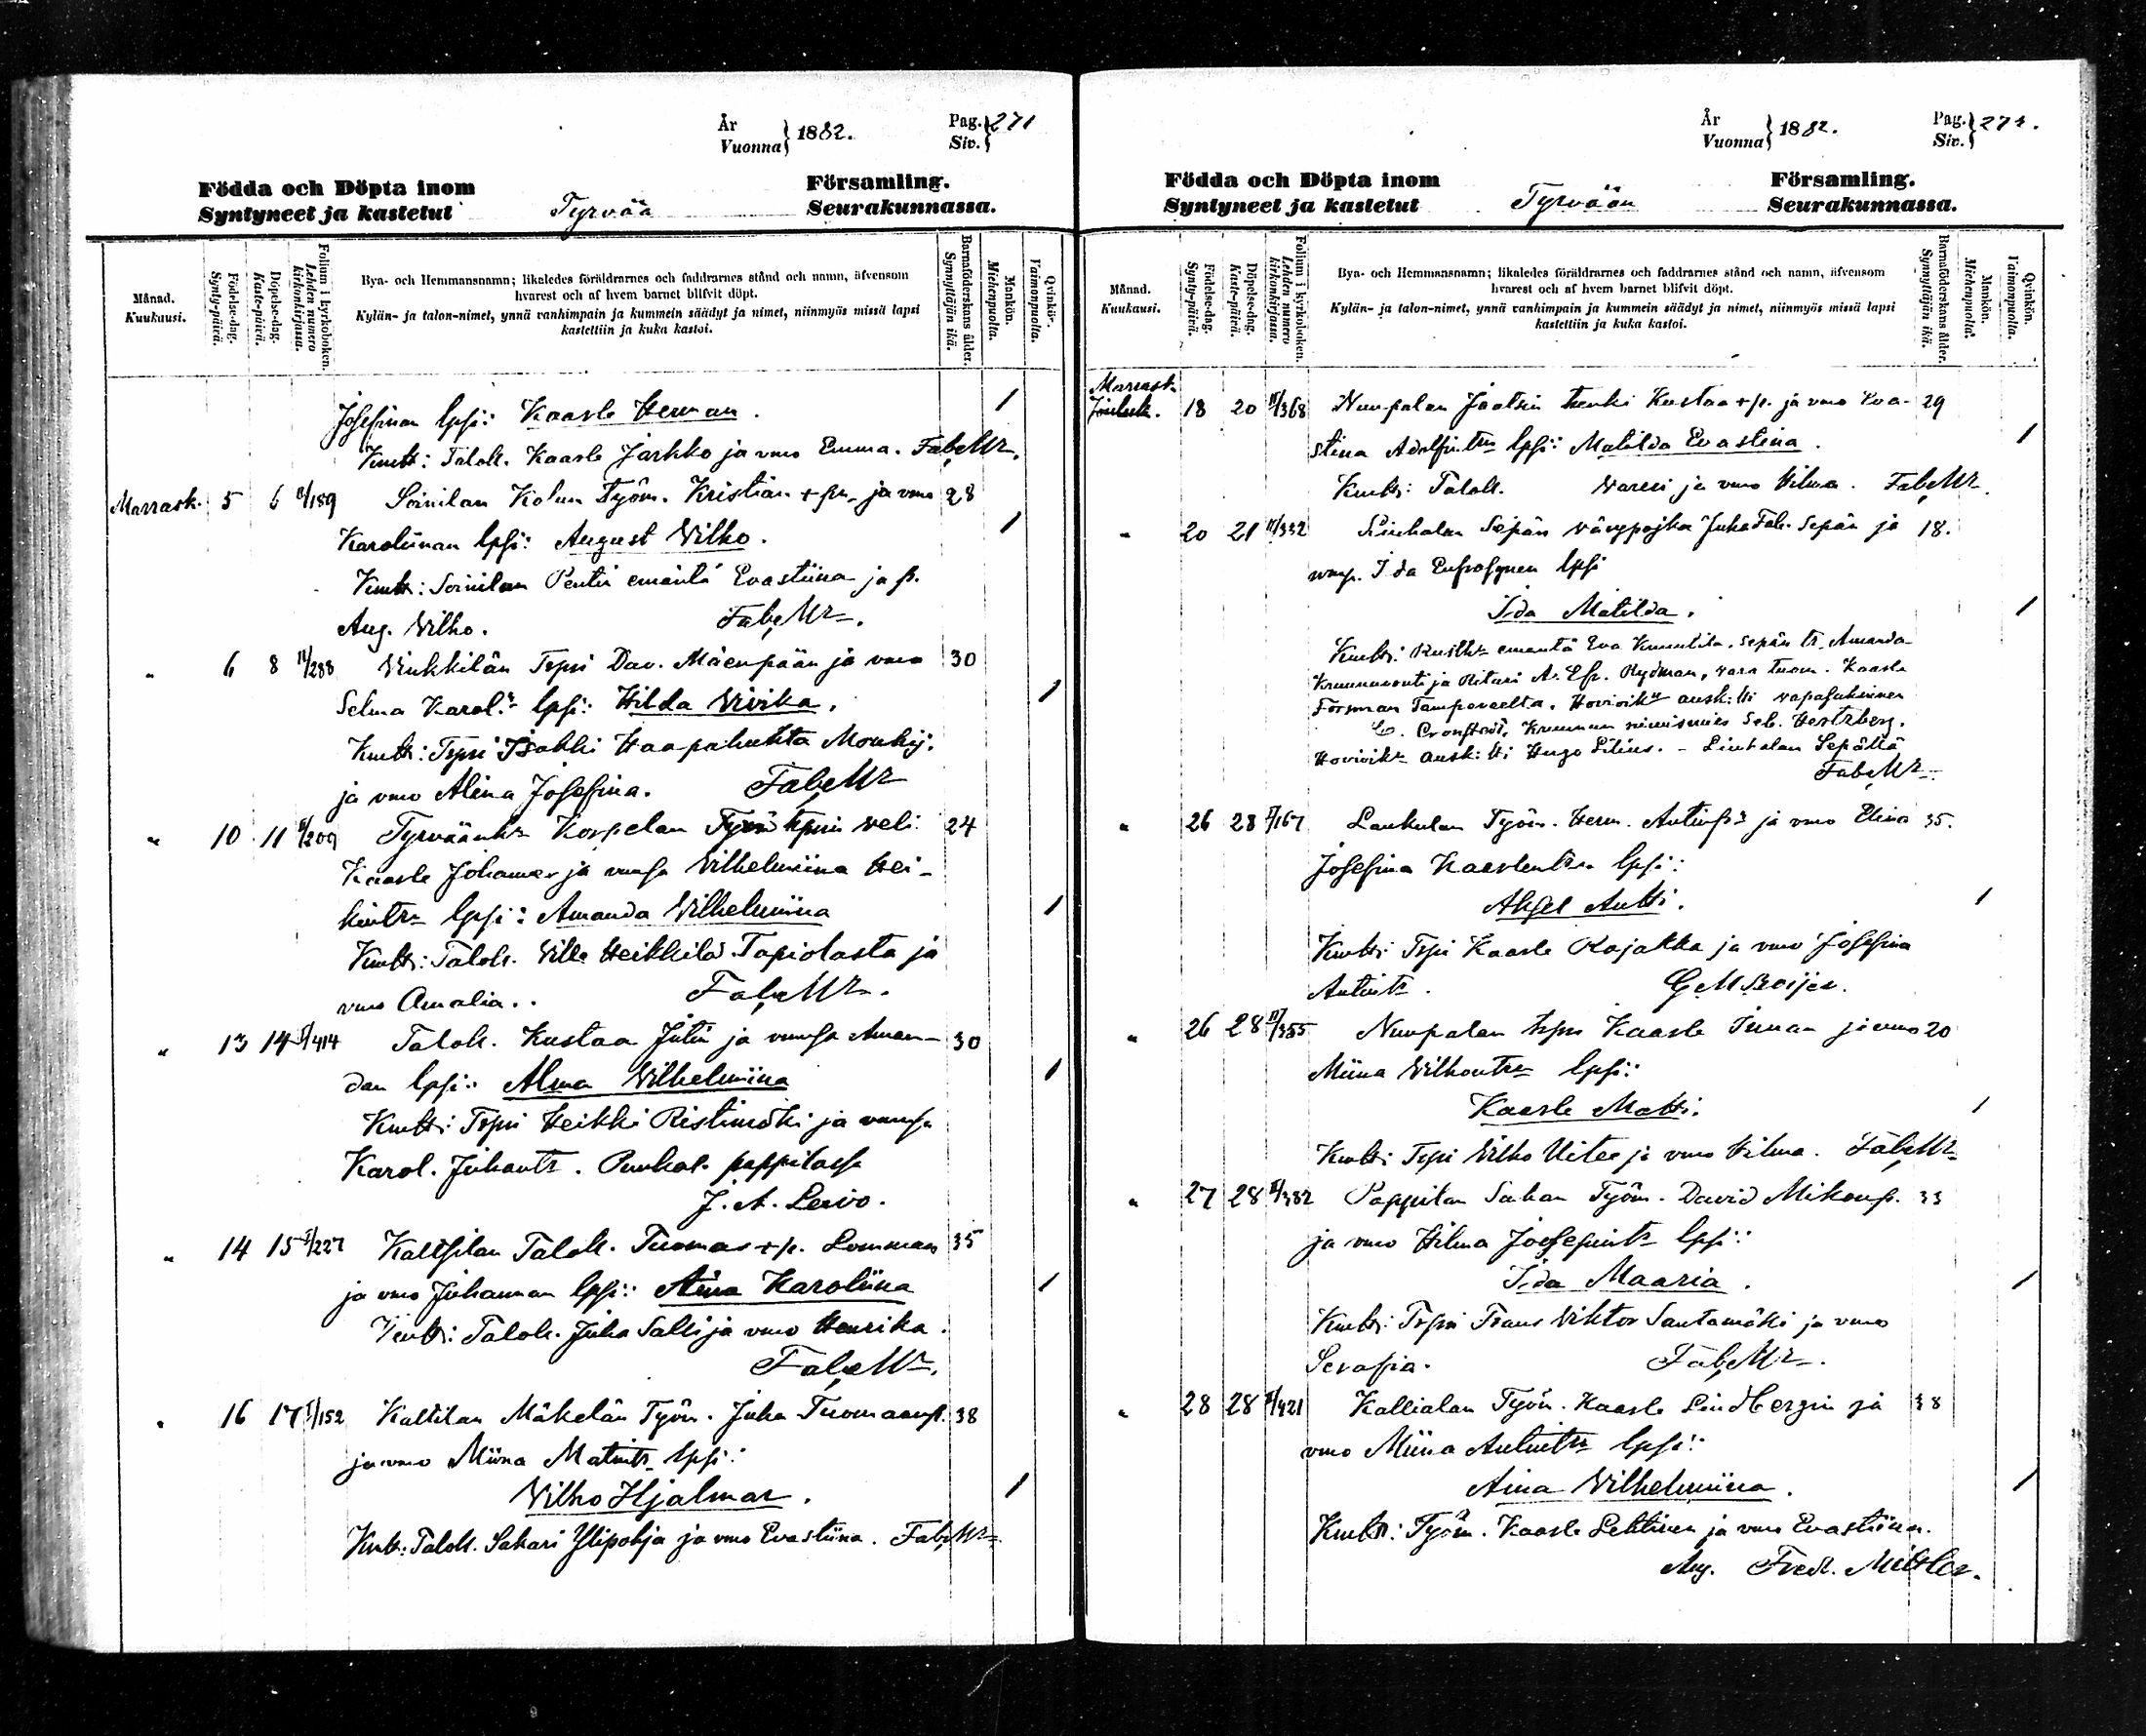 År
Vuonna } 1882.
Pag.
Siv. } 271
Födda och Döpta inom Tyrvää Församling.
Syntyneet ja kastetut Seurakunnassa.
Månad.
Kuukausi.
Födelse-dag.
Synty-päivä.
Döpelse-dag.
Kaste-päivä.
Folium i kyrkoboken.
Lehden numero kirkonkirjassa.
Bya- och Hemmansnamn; likaledes föräldrarnes och faddrarnes stånd och namn, äfvensom
hvarest och af hvem barnet blifvit döpt.
Kylän- ja talon-nimet, ynnä vanhimpain ja kummein säädyt ja nimet, niinmyös missä lapsi
kastettiin ja kuka kastoi.
Barnaföderskans ålder.
Synnyttäjän ikä.
Mankön.
Miehenpuolta.
Qvinkön.
Vaimonpuolta.
Josefinan lpsi: Kaarle Herman. 1
Kmtt: Talok. Kaarle Jarkko ja vmo Emma. Fab. Mr.
Marrask. 5 6 /189 Soinilan Kolun Työm. Kristian +pn ja vmo 28
Karoliinan lpsi: August Vilho. 1
Kmtt: Soinilan Pentin emäntä Evastiina ja p.
Aug. Vilho. Fab. Mr.
" 6 8 /288 Vinkkilän Tspsi Dav. Mäenpään ja vmo 30
Selma Karol. lpsi: Hilda Vivika. 1
Kmtt: Tspsi Isakki Haapahuhta Mouhij.
ja vmo Alina Josefina. Fab. Mr
" 10 11 /209 Tyrväänk. Korpelan tspsin veli 24
Kaarle Johannes ja vmsa Vilhelmiina Hei-
kintr lpsi: Amanda Vilhelmiina 1
Kmtt: Talok. Ville Heikkilä Tapiolasta ja
vmo Amalia. Fab. Mr.
" 13 14 /414 Talok. Kustaa Jutin ja vmsa Aman- 30
dan lpsi: Alma Vilhelmiina 1
Kmtt: Tspsi Heikki Ristimäki ja vmsa
Karol. Juhantr. pappilassa
J. A. Leivo.
" 14 15 /227 Kaltsilan Talok. Tuomas +p. Lomman 35
ja vmo Juhannan lpsi: Aina Karoliina 1
Kmtt: Talok. Juha Salli ja vmo Henrika.
Fab. Mr.
" 16 17 /152 Kaltilan Mäkelän Työm. Juha Tuomaanp. 38
ja vmo Miina Matintr lpsi:
Vilho Hjalmar. 1
Kmtt: Talok. Sakari Ylipohja ja vmo Evastiina. Fab. Mr.
År
Vuonna } 1882.
Pag.
Siv. } 272.
Födda och Döpta inom Tyrvään Församling.
Syntyneet ja kastetut Seurakunnassa.
Månad.
Kuukausi.
Födelse-dag.
Synty-päivä.
Döpelse-dag.
Kaste-päivä.
Folium i kyrkoboken.
Lehden numero kirkonkirjassa.
Bya- och Hemmansnamn; likaledes föräldrarnes och faddrarnes stånd och namn, äfvensom
hvarest och af hvem barnet blifvit döpt.
Kylän- ja talon-nimet, ynnä vanhimpain ja kummein säädyt ja nimet, niinmyös missä lapsi
kastettiin ja kuka kastoi.
Barnaföderskans ålder.
Synnyttäjän ikä.
Mankön.
Miehenpuolta.
Qvinkön.
Vaimonpuolta.
Marrask.
Jouluk. 18 20 /368 Nuupalan Jaatsin Kustaa +p. ja vmo Eva- 29
stina Adolfintr lpsi: Matilda Evastina. 1
Kmtt: Talok. Vareli ja vmo Hilma. Fab. Mr.
" 20 21 /332 Liuhalan Sepän vävypojka Juha Fab. Sepän ja 18.
vmo. Ida Eufrosynen lpsi
Ida Matilda. 1
Kmtt: emäntä Eva Kunntila, Sepän tr. Amanda
Kruununvouti ja Ritari A. Ef. Rydman, vara tuom. Kaarle
Forsman Tampereelta, Hovioik. ausk:
Kruunun nimismies Seb. Hertzberg,
Hovioik. ausk: Hugo Lilius. - Liuhalan Sepällä
Fab. Mr.
" 26 28 /167 Laukulan Työm. Herm. Antinp. ja vmo Elina 35.
Josefina Kaarlentr lpsi:
Aksel Antti. 1
Kmtt: Tspsi Kaarle Rajakka ja vmo Josefina
Antintr. G. M. Broijer.
" 26 28 /355 Nuupalan tspsi Kaarle Innan ja vmo 20
Miina Vilhontr lpsi:
Kaarle Matti. 1
Kmtt: Tspsi Vilho Uitee ja vmo Hilma. Fab. Mr
" 27 28 /382 Pappilan Sahan Työm. David Mikonp. 33
ja vmo Hilma Josefintr lpsi:
Ida Maaria. 1
Kmtt: Tspsi Frans Viktor Santamäki ja vmo
Serafia. Fab. Mr.
" 28 28 /421 Kallialan Työm. Kaarle Lindbergin ja 38
vmo Miina Antintr lpsi:
Aina Vilhelmiina. 1
Kmtt: Työm. Kaarle Lehtinen ja vmo Evastiina.
Aug. Fredr. Mittler.